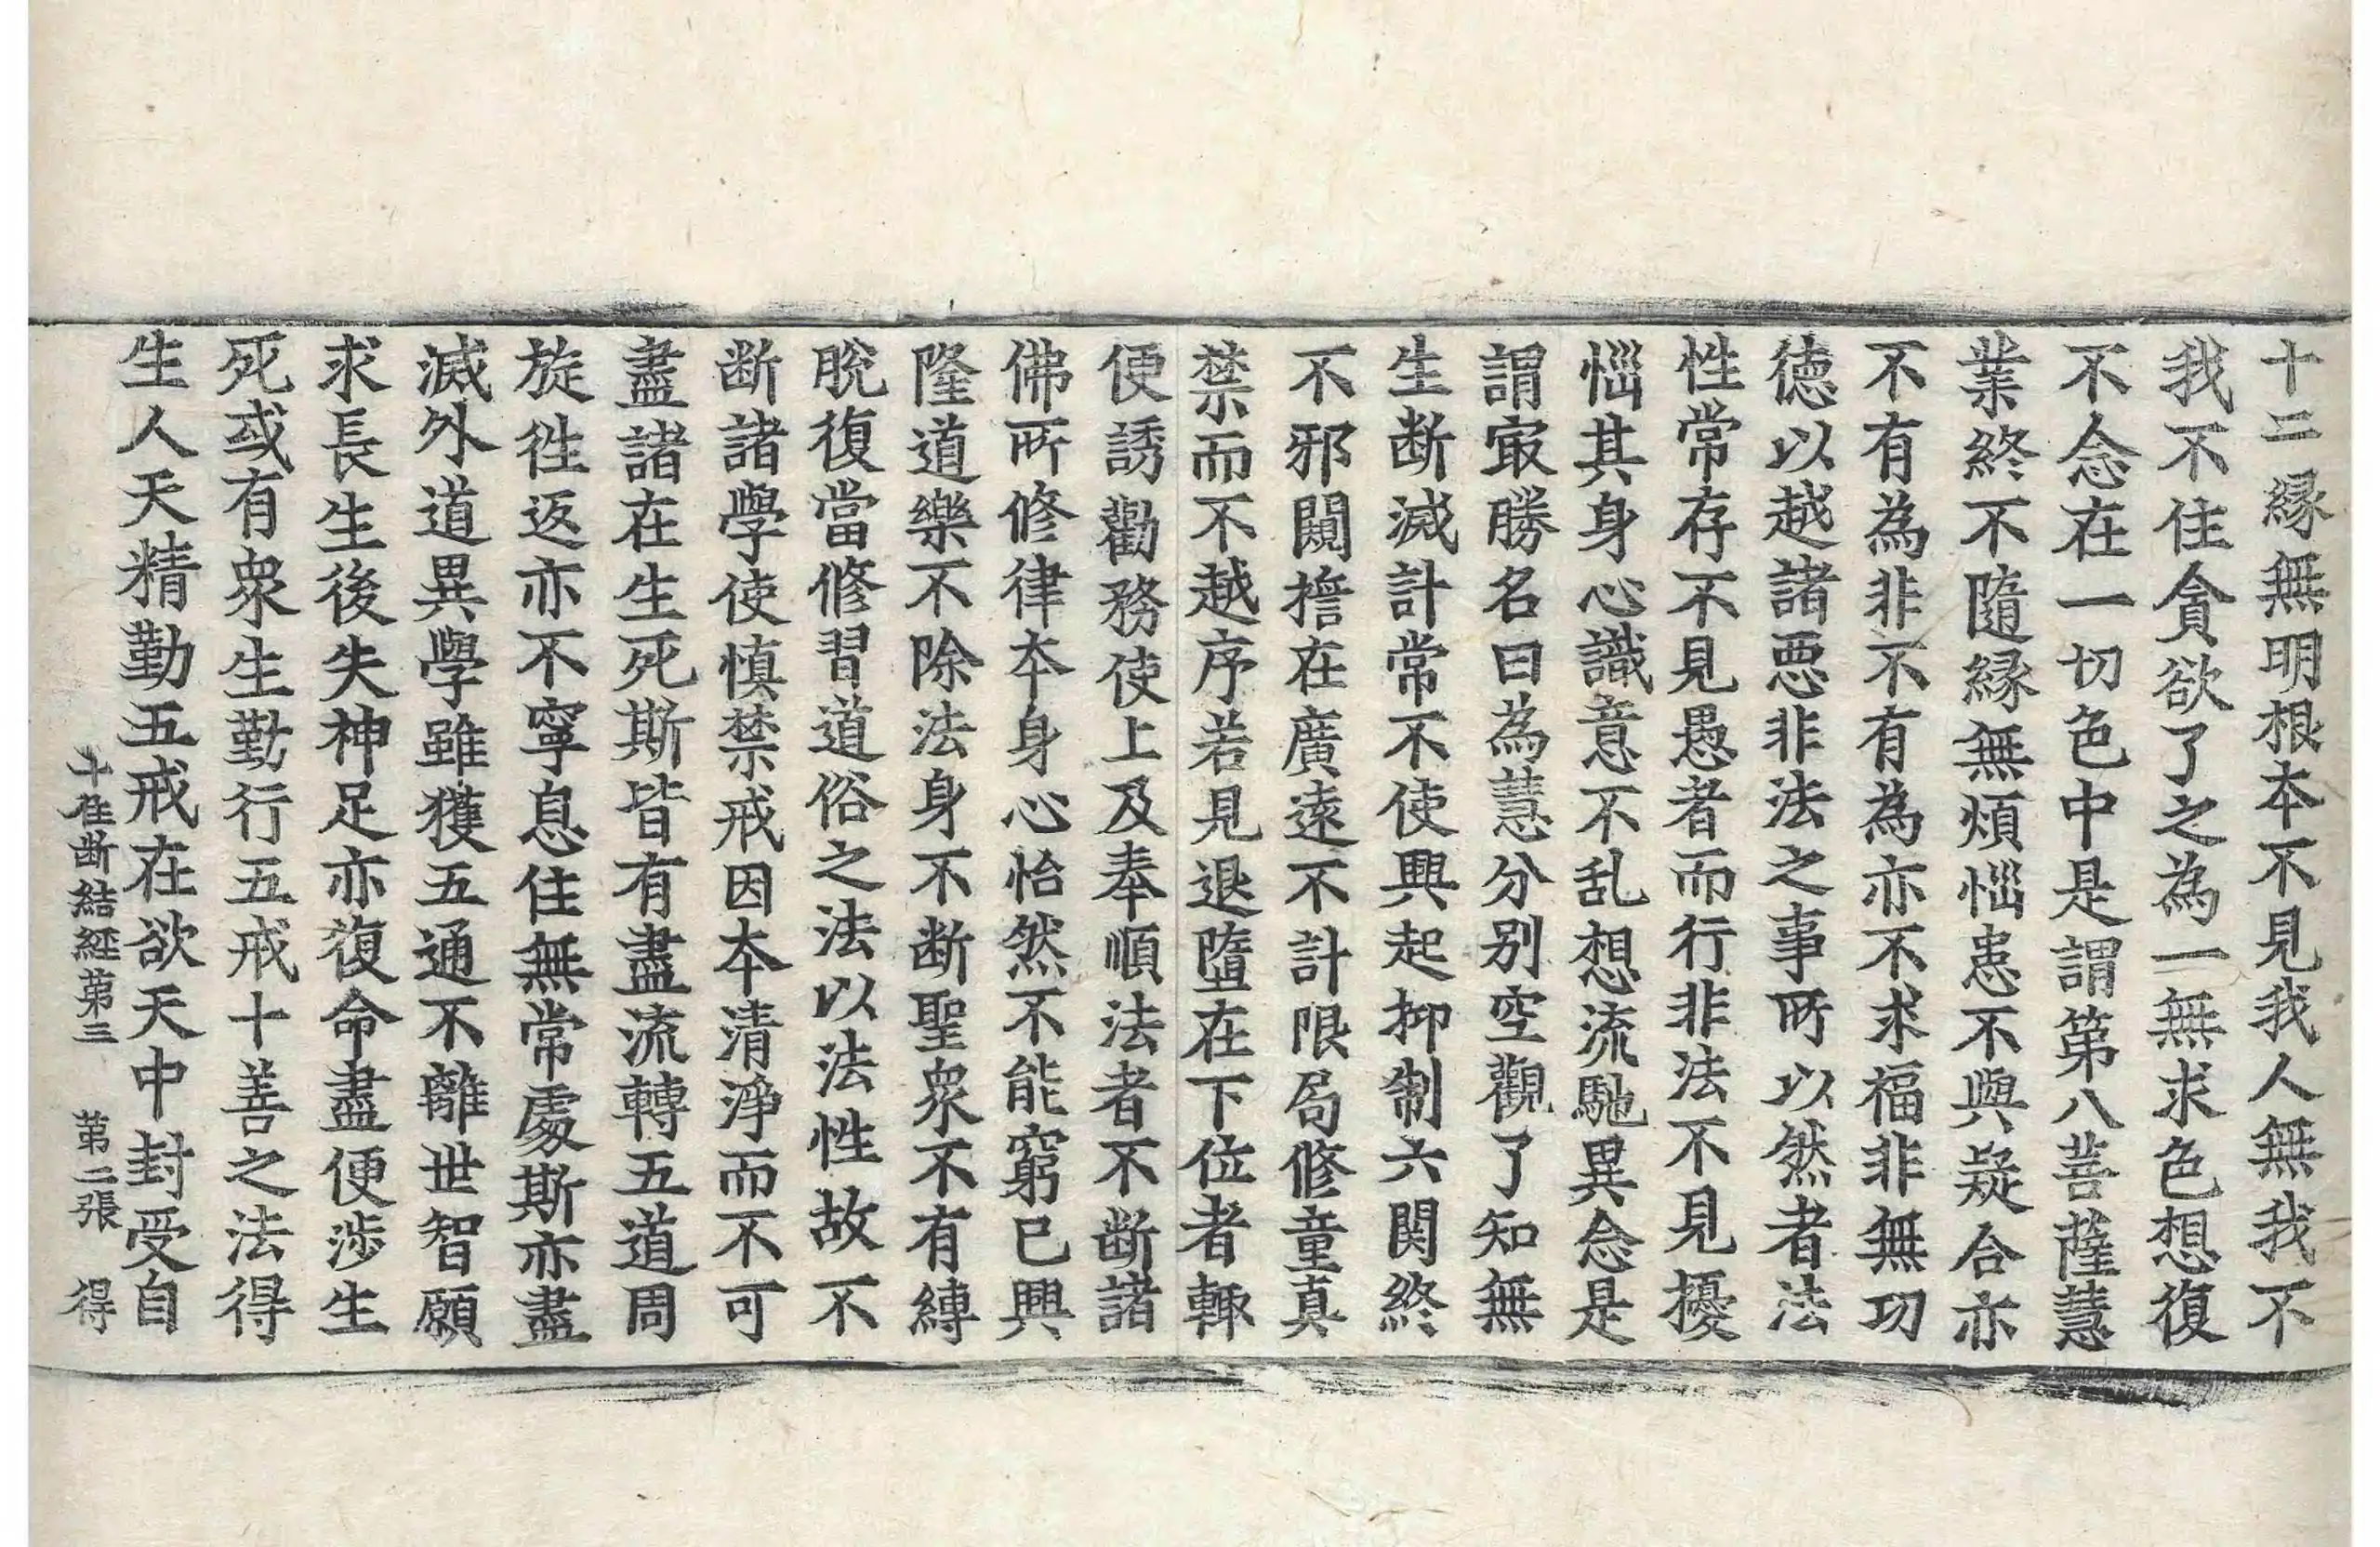 十二縁無明根本不見我人無我不
我不住貪欲了之為一無求色想復
不念在一切色中是謂第八菩薩慧
業終不隨縁無煩惱恚不與疑合亦
不有為非不有為亦不求福非無功
德以越諸惡非法之事所以然者法
性常存不見愚者而行非法不見擾
惱其身心識意不乱想流馳異念是
謂㝡勝名曰為慧分别空觀了知無
生断滅計常不使興起抑制六関終
不邪闚擔在廣遠不計限局修童真
禁而不越序若見退墮在下位者輙
便誘勸務使上及奉順法者不断諸
佛所修律夲身心怡然不能窮已興
隆道樂不除法身不断聖衆不有縛
脫復當修習道俗之法以法性故不
断諸學使慎禁戒因夲清淨而不可
盡諸在生死斯皆有盡流轉五道周
旋徃返亦不寧息住無常處斯亦盡
滅外道異學雖獲五通不離世智願
求長生後失神足亦復命盡便涉生
死或有衆生勤行五戒十善之法得
生人天精勤五戒在欲天中封受自
十住断結經第三　第二張　得